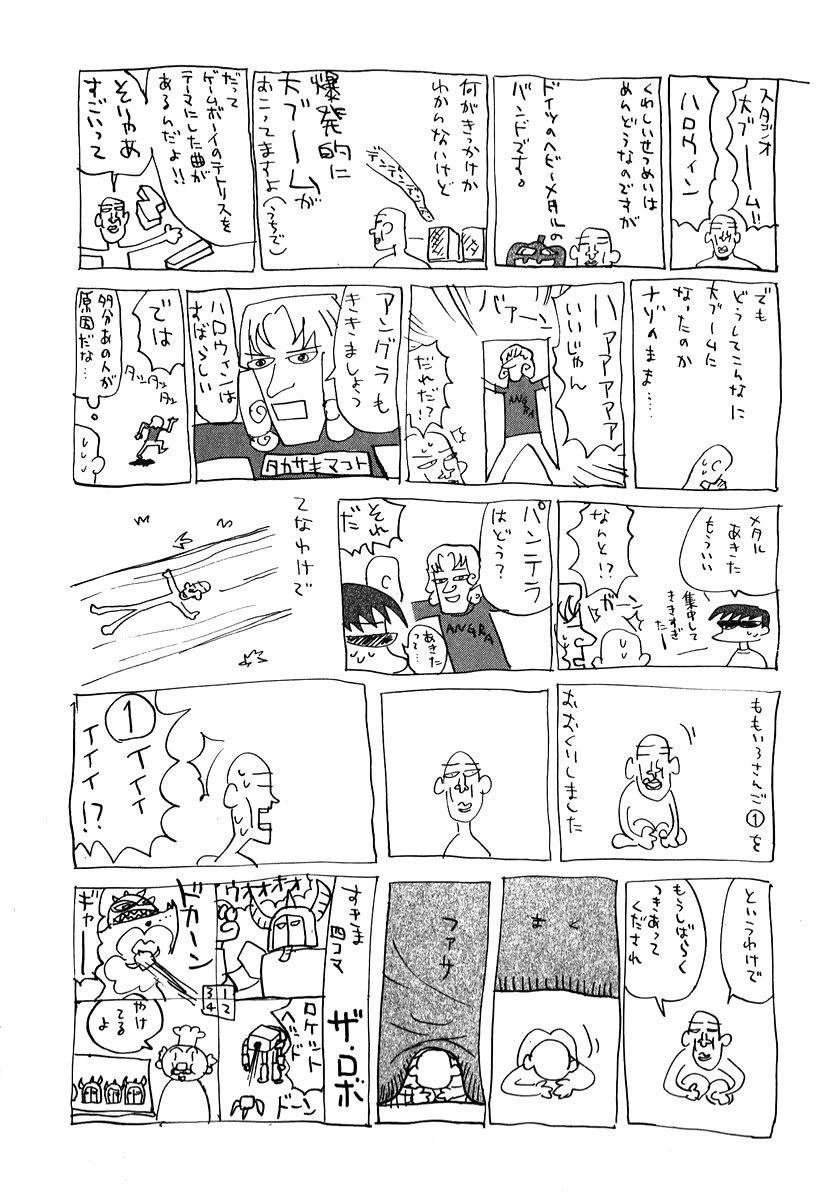 スタジオ
大ブーーム!!
ハロウィン
くわしいせつめいは
めんどうなのですが
ドイツのヘビーメタルの
バンドです。
何がきっかけか
わからないけど
爆発的に
大ブームが
おこってますよ(うちで)
テンテンテンテンテン
だって
ゲームボーイのテトリスを
テーマにした曲が
あるんだよ!!
そりゃあ
すごいって
でも
どうしてこんなに
大ブームに
なったのか
ナゾのまま‥‥
ハァアアアアア
いいじゃん
バァーン
ANGRA
だれだ!?
アングラも
ききましょう
ハロウィンは
すばらしい
タカサキマコト
では
タッタッタッ
多分あの人が
原因だな…
メタル
あきた
もういい
集中して
ききすぎ
たー
なんと!?
ガーン
パンテラ
はどう?
ANGRA
あきた
って…
それ
だ
てなわけで
ももいろさんご①を
おおくりしました
①イイイ
イイイ!?
というわけで
もうしばらく
つきあって
くだされ
まく
ファサ
すきま
四コマ
ザ・ロボ
ウォォホォ
3 1
4 2
ロケット
ヘッド
ドーン
ドカーン
ギャー
やけ
てる
よ